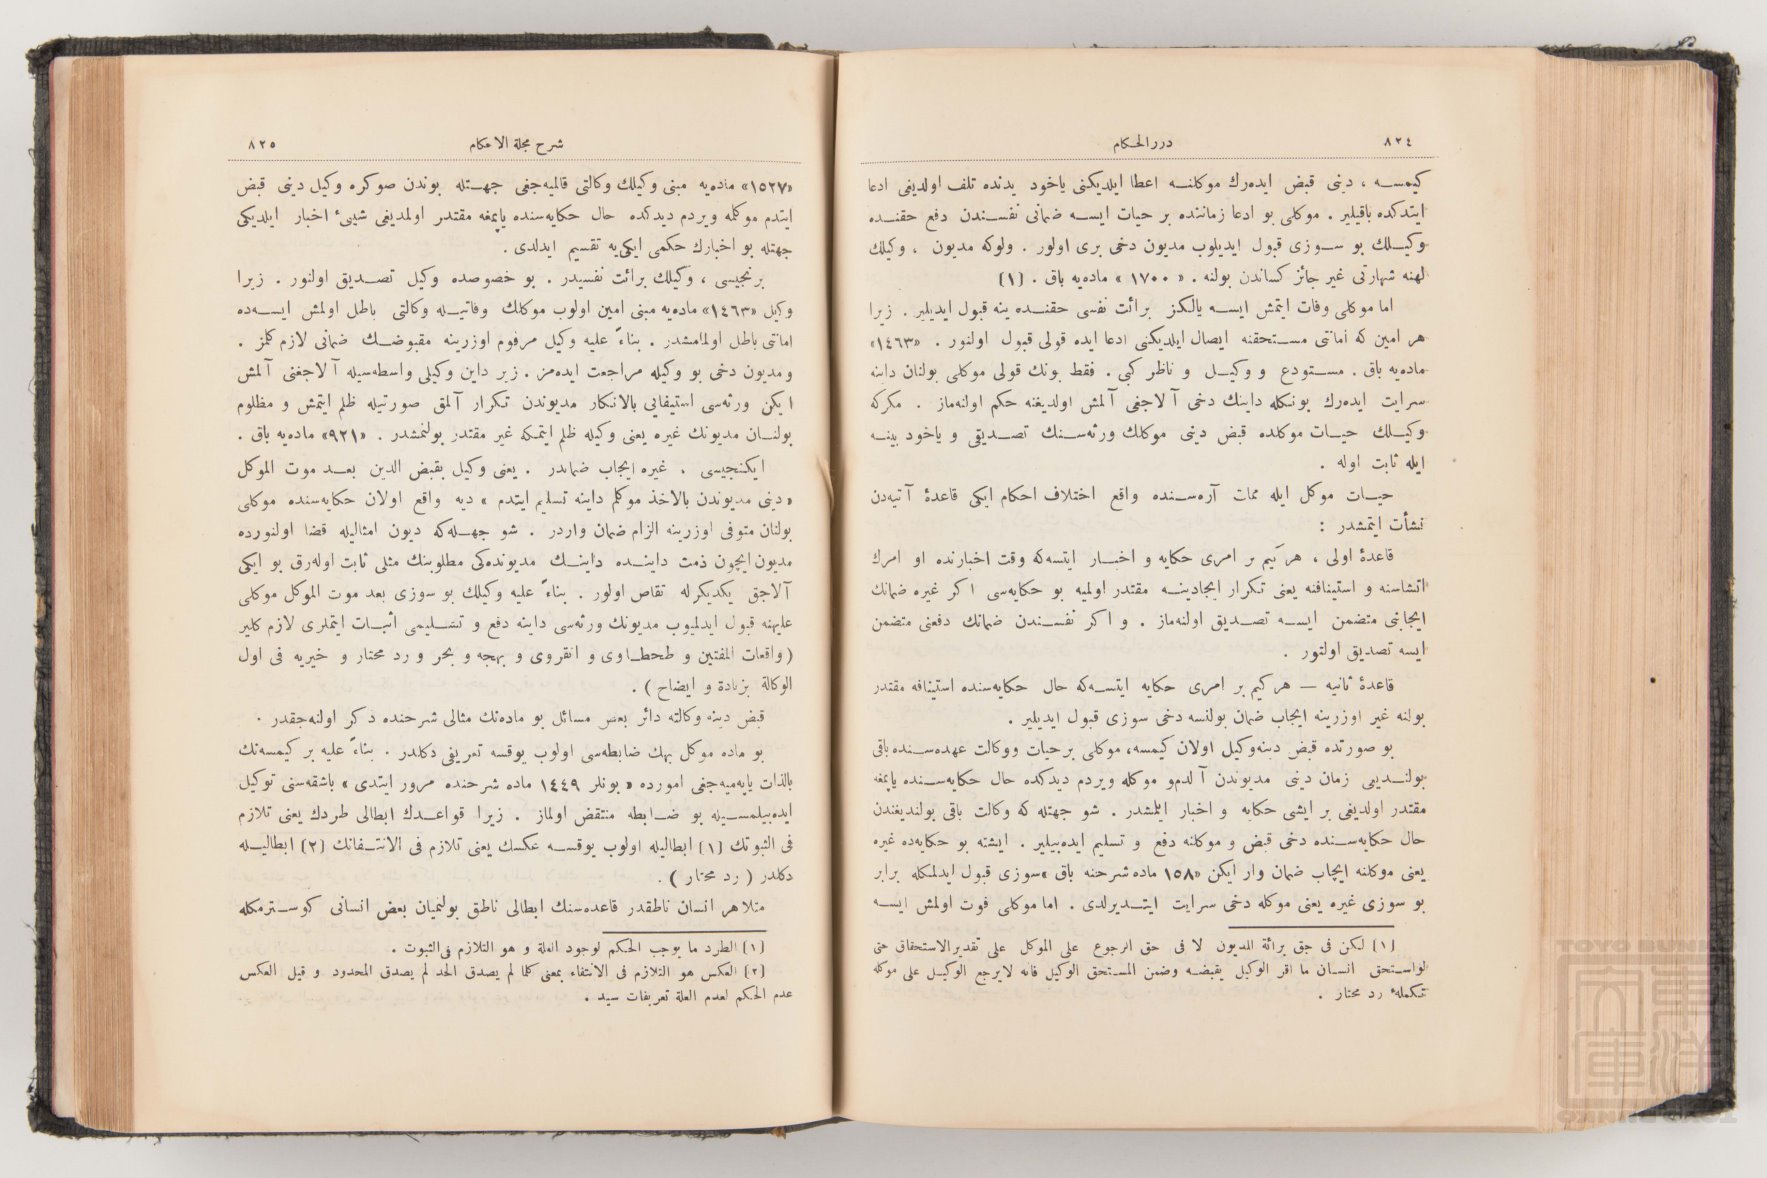 ٨٢٤
دررالحكام
كيمسه ، دينى قبض ايده‌رك موكلنه اعطا ايلديكنى ياخود يدنده تلف اولديغى ادعا
ايتدكده باقيلير . موكلى بو ادعا زماننده بر حيات ايسه ضمانى نفسندن دفع حقنده
وكيلك بو سوزى قبول ايديلوب مديون دخى برى اولور . ولوكه مديون ، وكيلك
لهنه شهادتى غير جائز كساندن بولنه . « ١٧٠٠ » ماده‌يه باق . (١)
اما موكلى وفات ايتمش ايسه يالكز برائت نفسى حقنده ينه قبول ايديلير . زيرا
هر امين كه امانتى مستحقنه ايصال ايلديكنى ادعا ايده قولى قبول اولنور . «١٤٦٣»
ماده‌يه باق . مستودع و وكيل و ناظر كبى . فقط بونك قولى موكلى بولنان داينه
سرايت ايده‌رك بونكله داينك دخى آلاجغى آلمش اولديغنه حكم اولنه‌ماز . مكركه
وكيلك حيات موكلده قبض دينى موكلك ورثه‌سنك تصديقى و ياخود بينه
ايله ثابت اوله .
حيات موكل ايله ممات آره‌سنده واقع اختلاف احكام ايكى قاعدهٔ آتيه‌دن
نشأت ايتمشدر :
قاعدهٔ اولى ، هر كيم بر امرى حكايه و اخبار ايتسه‌كه وقت اخبارنده او امرك
انشاسنه و استينافنه يعنى تكرار ايجادينه مقتدر اولميه بو حكايه‌سى اكر غيره ضمانك
ايجابنى متضمن ايسه تصديق اولنه‌ماز . و اكر نفسندن ضمانك دفعنى متضمن
ايسه تصديق اولنور .
قاعدهٔ ثانيه — هر كيم بر امرى حكايه ايتسه‌كه حال حكايه‌سنده استينافه مقتدر
بولنه غير اوزرينه ايجاب ضمان بولنسه دخى سوزى قبول ايديلير .
بو صورتده قبض دينه وكيل اولان كيمسه، موكلى بر حيات ووكالت عهده‌سنده باقى
بولنديغى زمان دينى مديوندن آلدم و موكله ويردم ديدكده حال حكايه‌سنده ياپمغه
مقتدر اولديغى بر ايشى حكايه و اخبار ايلمشدر . شو جهتله كه وكالت باقى بولنديغندن
حال حكايه‌سنده دخى قبض و موكلنه دفع و تسليم ايده‌بيلير . ايشته بو حكايه‌ده غيره
يعنى موكلنه ايجاب ضمان وار ايكن «١٥٨ ماده شرحنه باق» سوزى قبول ايدلمكله برابر
بو سوزى غيره يعنى موكله دخى سرايت ايتديرلدى . اما موكلى فوت اولمش ايسه
(١) لكن فى حق برائة المديون لا فى حق الرجوع على الموكل على تقدير الاستحقاق حتى
لواستحق انسان ما اقر الوكيل بقبضه وضمن المستحق الوكيل فانه لايرجع الوكيل على موكله
تكملهٔ رد محتار .
شرح مجلة الاحكام
٨٢٥
«١٥٢٧» ماده‌يه مبنى وكيلك وكالتى قالميه‌جغى جهتله بوندن صوكره وكيل دينى قبض
ايتدم موكله ويردم ديدكده حال حكايه‌سنده ياپمغه مقتدر اولمديغى شيئ اخبار ايلديكى
جهتله بو اخبارك حكمى ايكى‌يه تقسيم ايدلدى .
برنجيسى ، وكيلك برائت نفسيدر . بو خصوصده وكيل تصديق اولنور . زيرا
وكيل «١٤٦٣» ماده‌يه مبنى امين اولوب موكلك وفاتيله وكالتى باطل اولمش ايسه‌ده
امانتى باطل اولمامشدر . بناءً عليه وكيل مرقوم اوزرينه مقبوضك ضمانى لازم كلمز .
و مديون دخى بو وكيله مراجعت ايده‌مز . زيرا داين وكيلى واسطه‌سيله آلاجغنى آلمش
ايكن ورثه‌سى استيفايى بالانكار مديوندن تكرار آلمق صورتيله ظلم ايتمش و مظلوم
بولنان مديونك غيره يعنى وكيله ظلم ايتمكه غير مقتدر بولنمشدر . «٩٢١» ماده‌يه باق .
ايكنجيسى ، غيره ايجاب ضماندر . يعنى وكيل بقبض الدين بعد موت الموكل
«دينى مديوندن بالاخذ موكلم داينه تسليم ايتدم» ديه واقع اولان حكايه‌سنده موكلى
بولنان متوفى اوزرينه الزام ضمان واردر . شو جهتله‌كه ديون امثاليله قضا اولنورده
مديون ايچون ذمت داينده داينك مديونده‌كى مطلوبنك مثلى ثابت اوله‌رق بو ايكى
آلاجق يكديكرله تقاص اولور . بناءً عليه وكيلك بو سوزى بعد موت الموكل موكلى
عليهنه قبول ايدلميوب مديونك ورثه‌سى داينه دفع و تسليمى اثبات ايتملرى لازم كلير
(واقعات المفتين و طحطاوى و انقروى و بهجه و بحر و رد محتار و خيريه فى اول
الوكالة بزيادة و ايضاح) .
قبض دينه وكالته دائر بعض مسائل بو ماده‌نك مثالى شرحنده ذكر اولنه‌جقدر .
بو ماده موكل بهك ضابطه‌سى اولوب يوقسه تعريفى دكلدر . بناءً عليه بر كيمسه‌نك
بالذات ياپه‌ميه‌جغى امورده «بونلر ١٤٤٩ ماده شرحنده مرور ايتدى» باشقه‌سنى توكيل
ايده‌بيلمسيله بو ضابطه منتقض اولماز . زيرا قواعدك ابطالى طردك يعنى تلازم
فى الثبوتك (١) ابطاليله اولوب يوقسه عكسك يعنى تلازم فى الانتفانك (٢) ابطاليله
دكلدر (رد محتار) .
مثلا هر انسان ناطقدر قاعده‌سنك ابطالى ناطق بولنميان بعض انسانى كوسترمكله
(١) الطرد ما يوجب الحكم لوجود العلة و هو التلازم فى الثبوت .
(٢) العكس هو التلازم فى الانتفاء بمعنى كلما لم يصدق الحد لم يصدق المحدود و قيل العكس
عدم الحكم لعدم العلة تعريفات سيد .
TOYO BUNKO